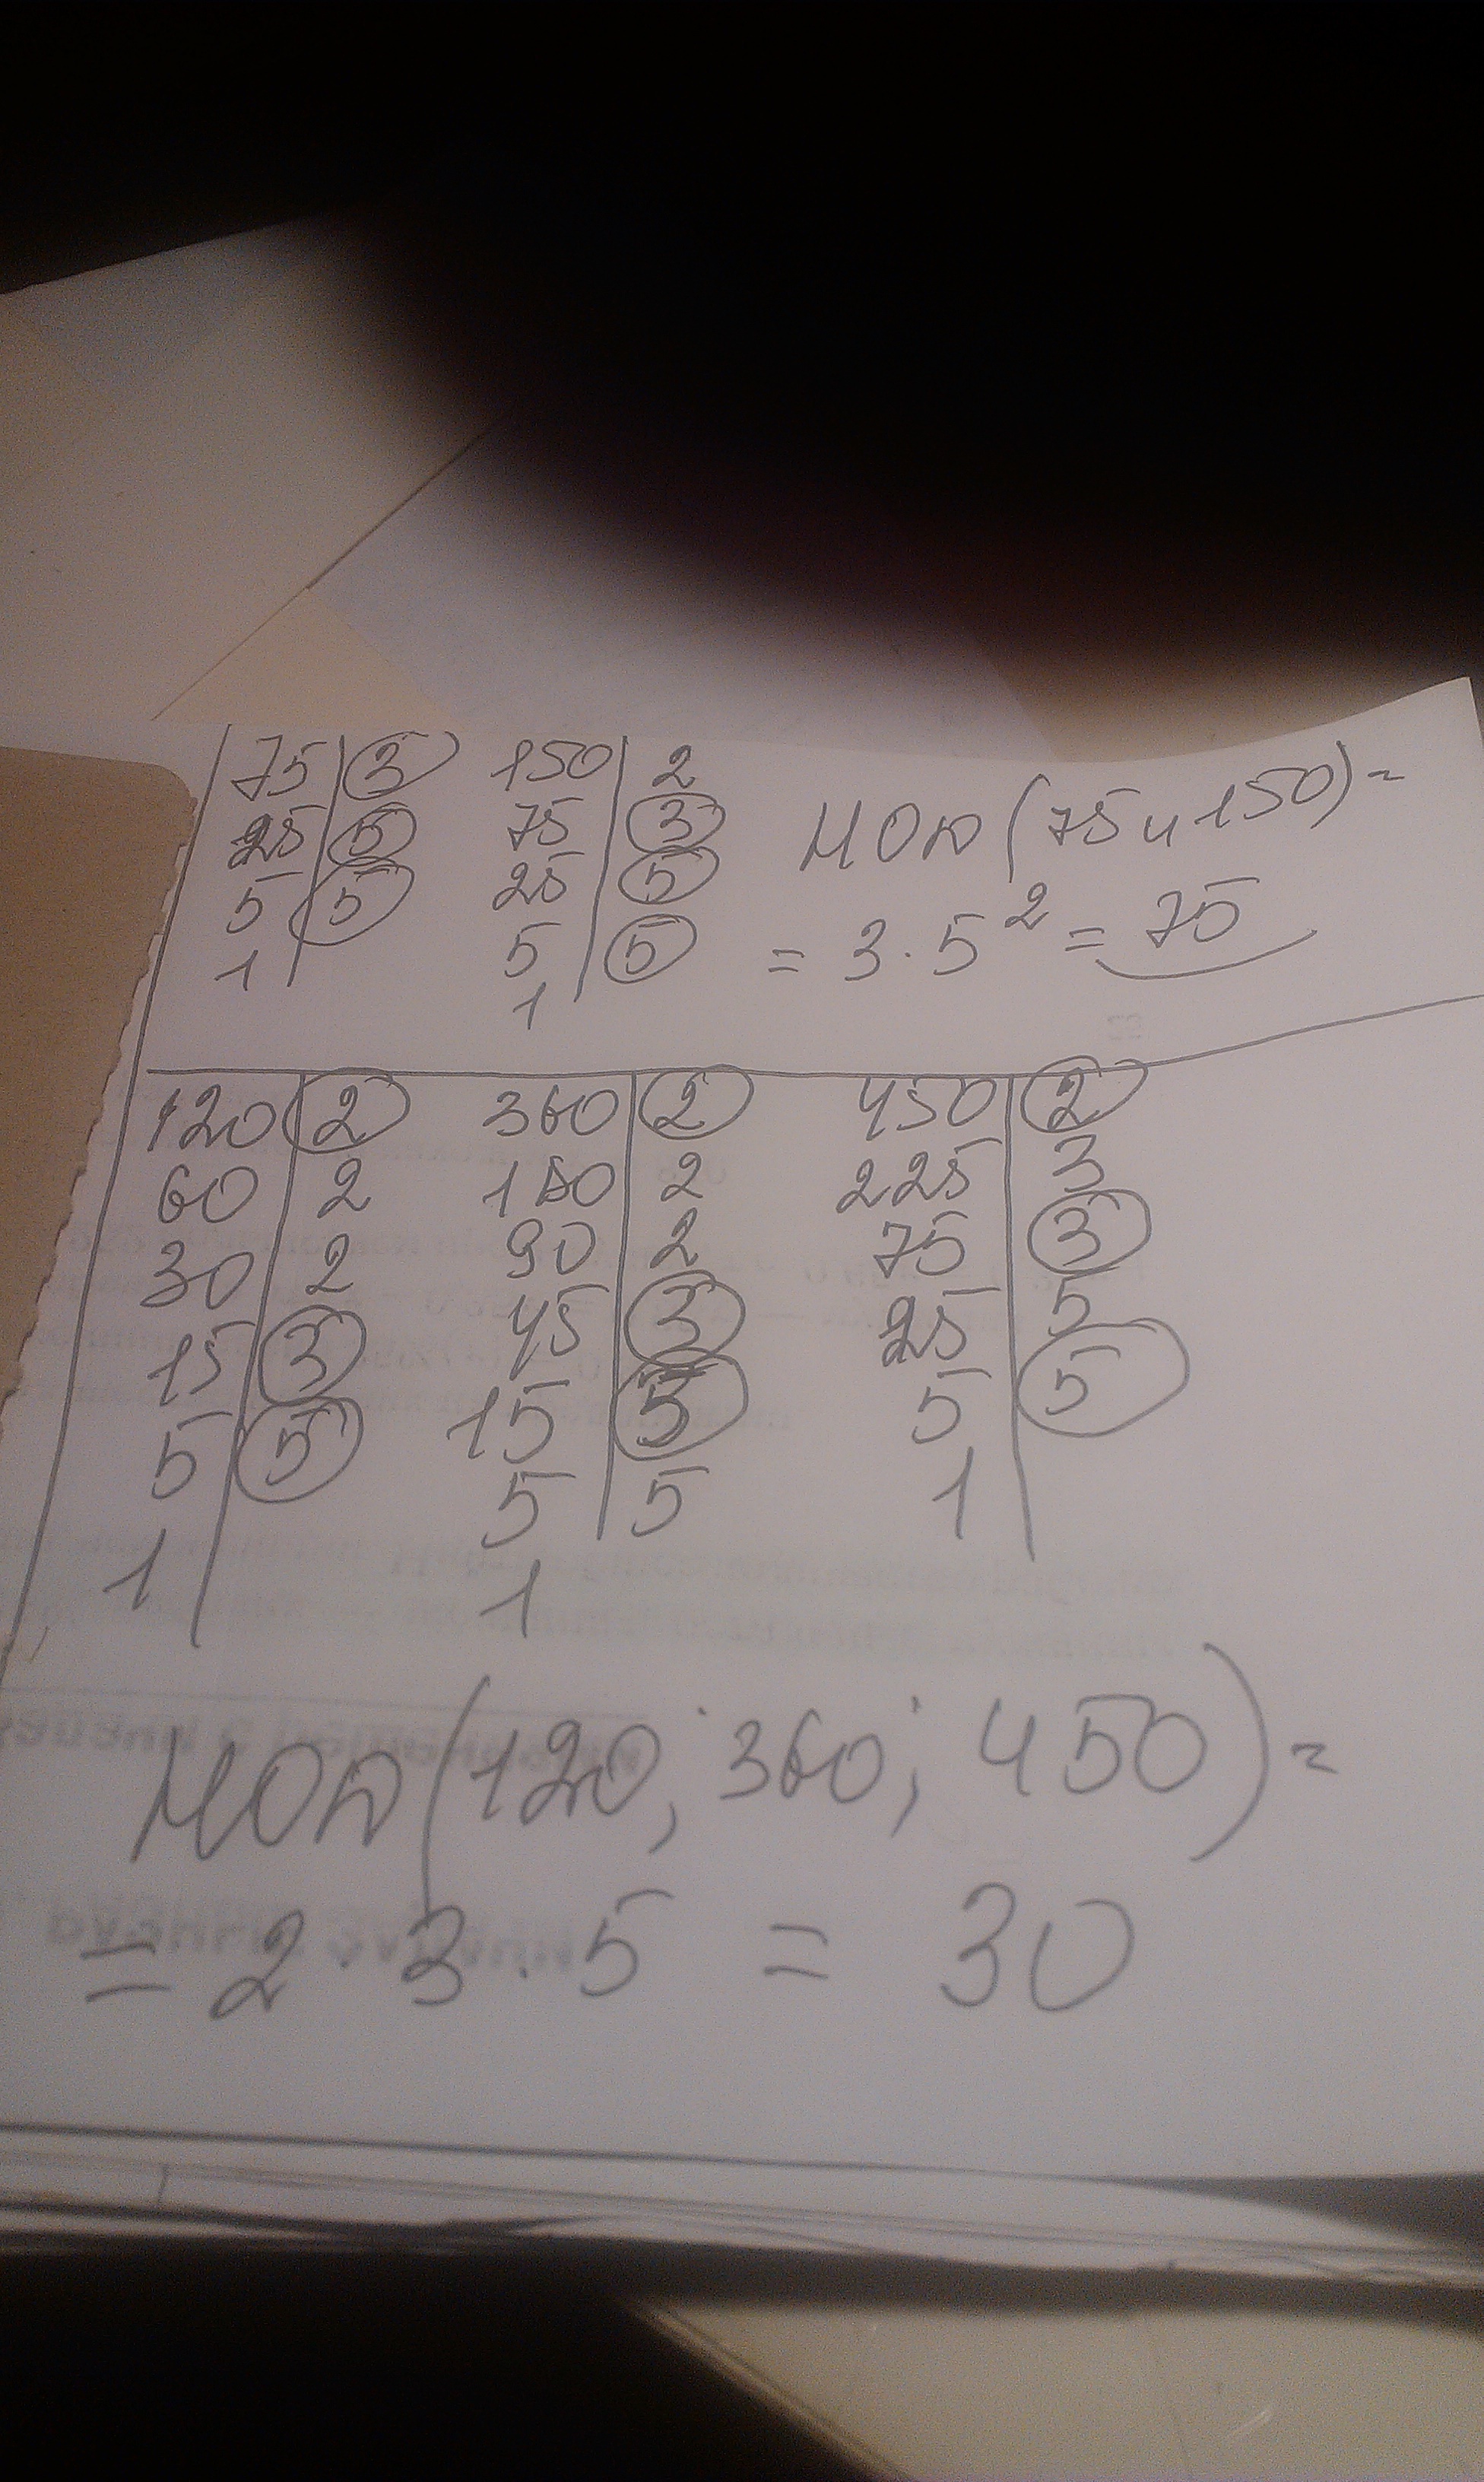 75 | 3 150 | 2
25 | 5 75 | 3 НОД (75 и 150) =
5 | 5 25 | 5 = 3 · 5² = 75
1 5 | 5
1
120 | 2 360 | 2 450 | 2
60 | 2 180 | 2 225 | 3
30 | 2 90 | 2 75 | 3
15 | 3 45 | 3 25 | 5
5 | 5 15 | 5 5 | 5
1 5 | 5 1
1
НОД (120; 360; 450) =
= 2 · 3 · 5 = 30